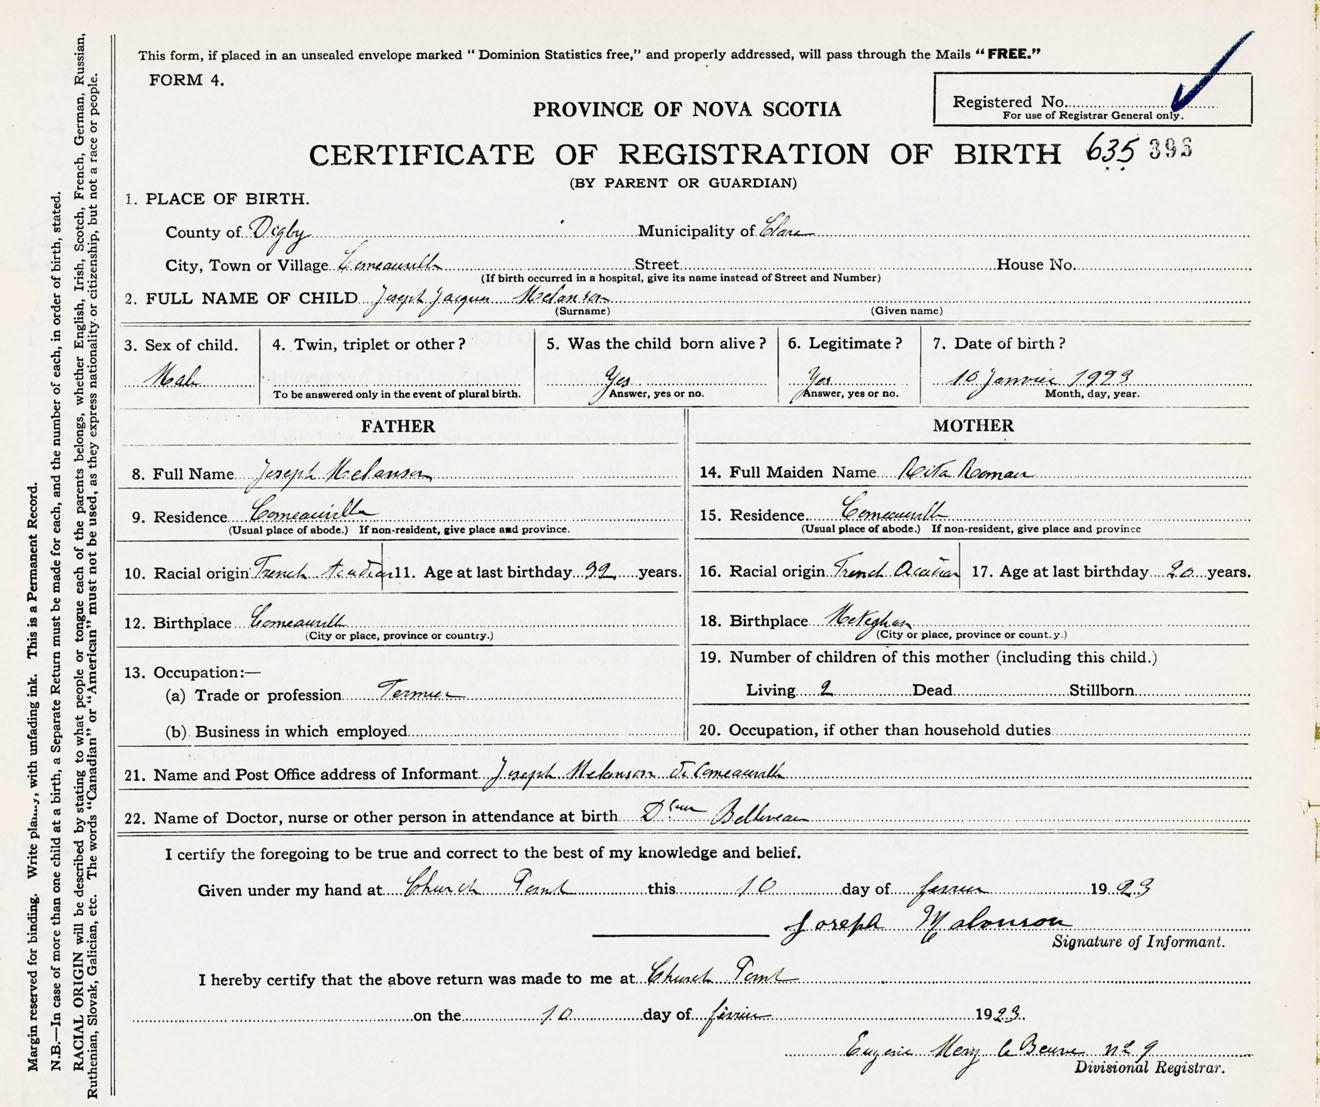 This form, if placed in an unsealed envelope marked "Dominion Statistics free," and properly addressed, will pass through the Mails "FREE."
FORM 4.
Registered No.
For use of Registrar General only.
PROVINCE OF NOVA SCOTIA
CERTIFICATE OF REGISTRATION OF BIRTH 635 393
(BY PARENT OR GUARDIAN)
1. PLACE OF BIRTH.
County of Digby Municipality of Clare
City, Town or Village Comeauville Street House No.
(If birth occurred in a hospital, give its name instead of Street and Number)
2. FULL NAME OF CHILD Joseph Jacques Melanson
(Surname) (Given name)
3. Sex of child. 4. Twin, triplet or other? 5. Was the child born alive? 6. Legitimate? 7. Date of birth?
Male Yes Yes 10 Janvier 1923
To be answered only in the event of plural birth. Answer, yes or no. Answer, yes or no. Month, day, year.
FATHER MOTHER
8. Full Name Joseph Melanson 14. Full Maiden Name Rita
9. Residence Comeauville 15. Residence Comeauville
(Usual place of abode.) If non-resident, give place and province. (Usual place of abode.) If non-resident, give place and province
10. Racial origin French Acadian 11. Age at last birthday years. 16. Racial origin French Acadian 17. Age at last birthday 20 years.
12. Birthplace Comeauville 18. Birthplace Meteghan
(City or place, province or country.) (City or place, province or count.y.)
13. Occupation:— 19. Number of children of this mother (including this child.)
(a) Trade or profession Living 2 Dead Stillborn
(b) Business in which employed 20. Occupation, if other than household duties
21. Name and Post Office address of Informant Joseph Melanson Comeauville
22. Name of Doctor, nurse or other person in attendance at birth Belliveau
I certify the foregoing to be true and correct to the best of my knowledge and belief.
Given under my hand at Church Point this 10 day of 1923
Joseph Malonson
Signature of Informant.
I hereby certify that the above return was made to me at Church Point
on the 10 day of 1923.
Le no 9
Divisional Registrar.
Margin reserved for binding. Write with unfading ink. This is a Permanent Record.
N.B.—In case of more than one child at a birth, a Separate Return must be made for each, and the number of each, in order of birth, stated.
RACIAL ORIGIN will be described by stating to what people or tongue each of the parents belongs, whether English, Irish, Scotch, French, German, Russian,
Ruthenian, Slovak, Galician, etc. The words "Canadian" or "American" must not be used, as they express nationality or citizenship, but not a race or people.